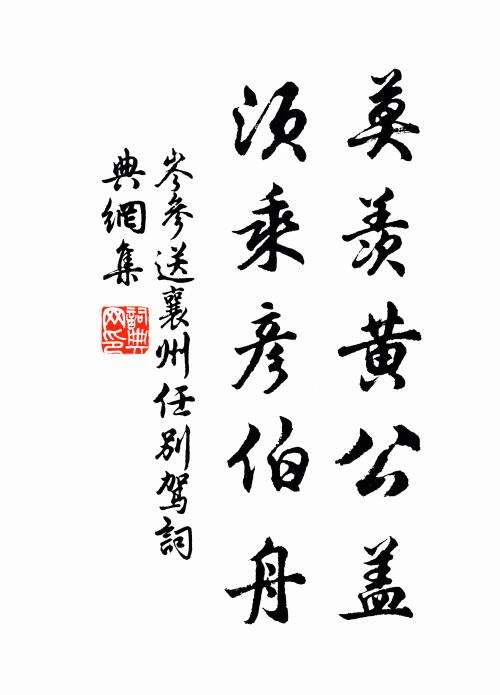 莫羡黄公盖
须乘彦伯舟
岑參送襄州任别驾詞
典網集
詞典网印